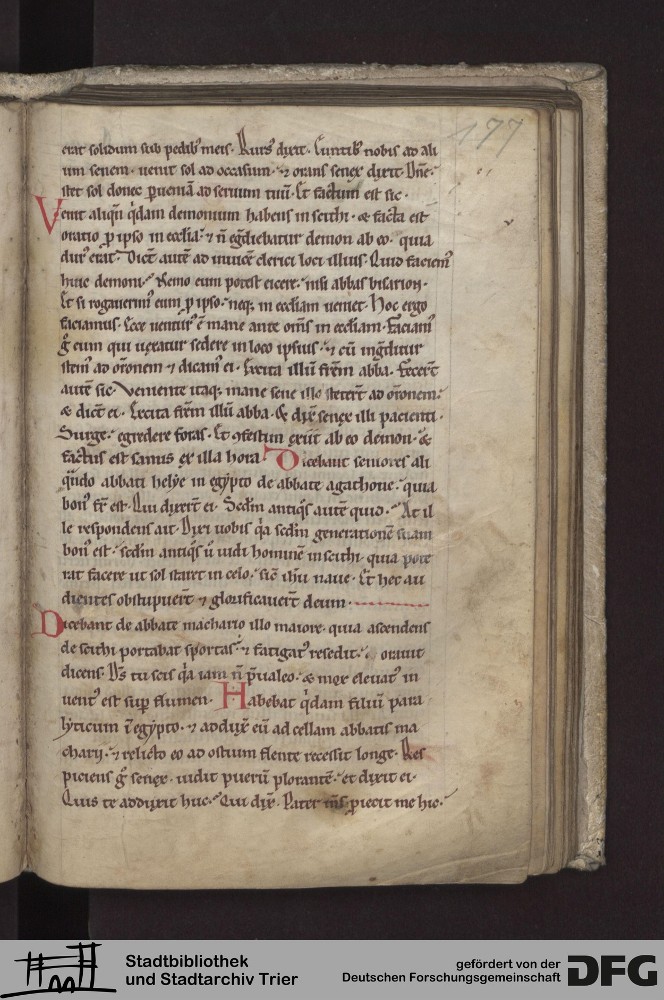 177
erat solidum sub pedib' meis. Rurs' dixit. Euntib' nobis ad ali
um senem. uenit sol ad occasum. ⁊ orans senex dixit. Dn̄e.
stet sol donec pueniā ad seruum tuū. Et factum est sic.
Venit aliqn̄ qdam demonium habens in scithi. & facta est
oratio p ipso in ecclia. ⁊ n̄ egdiebatur demon ab eo. quia
dur' erat. Dicūt autē ad inuicē clerici loci illius. Quid faciem'
huic demoni. Nemo eum potest eicere. nisi abbas bisarion.
Et si rogauerim' eum p ipso. neq; in eccliam ueniet. Hoc ergo
faciamus. Ecce uentur' ē mane ante om̄s in eccliam. Faciam'
g eum qui uexatur sedere in loco ipsius. ⁊ cū ingditur
stem' ad oronem ⁊ dicam' ei. Excita illū frēm abba. Fecert
autē sic. Veniente itaq; mane sene illo stetert ad oronem.
& dict ei. Excita frēm illū abba. & dix senex illi pacienti.
Surge. egredere foras. Et 9festim exiit ab eo demon. &
factus est sanus ex illa hora. Dicebant seniores ali
qn̄do abbati helye in egypto de abbate agathone. quia
bon' fr̄ est. Qui dixert ei. Sedm̄ antiqs autē quid. At il
le respondens ait. Dixi uobis qa sedm̄ generationē suam
bon' est. sedm̄ antiqs ū uidi hominē in scithi. quia pote
rat facere ut sol staret in celo. sic̄ ihu naue. Et hec au
dientes obstupuert ⁊ glorificauert deum.
Dicebant de abbate machario illo maiore. quia ascendens
de scithi portabat sportas. ⁊ fatigat' resedit. orauit
dicens. Ds̄ tu scis qa iam n̄ pualeo. & mox eleuat' in
uent' est sup flumen. Habebat qdam filiū para
lyticum ī egypto. ⁊ addux eū ad cellam abbatis ma
charii. ⁊ relicto eo ad ostium flente recessit longe. Res
piciens g senex. uidit puerū plorantē. et dixit ei.
Quis te adduxit huc. Qui dix. Pater ms̄ piecit me hic.
Stadtbibliothek
und Stadtarchiv Trier
gefördert von der
Deutschen Forschungsgemeinschaft
DFG